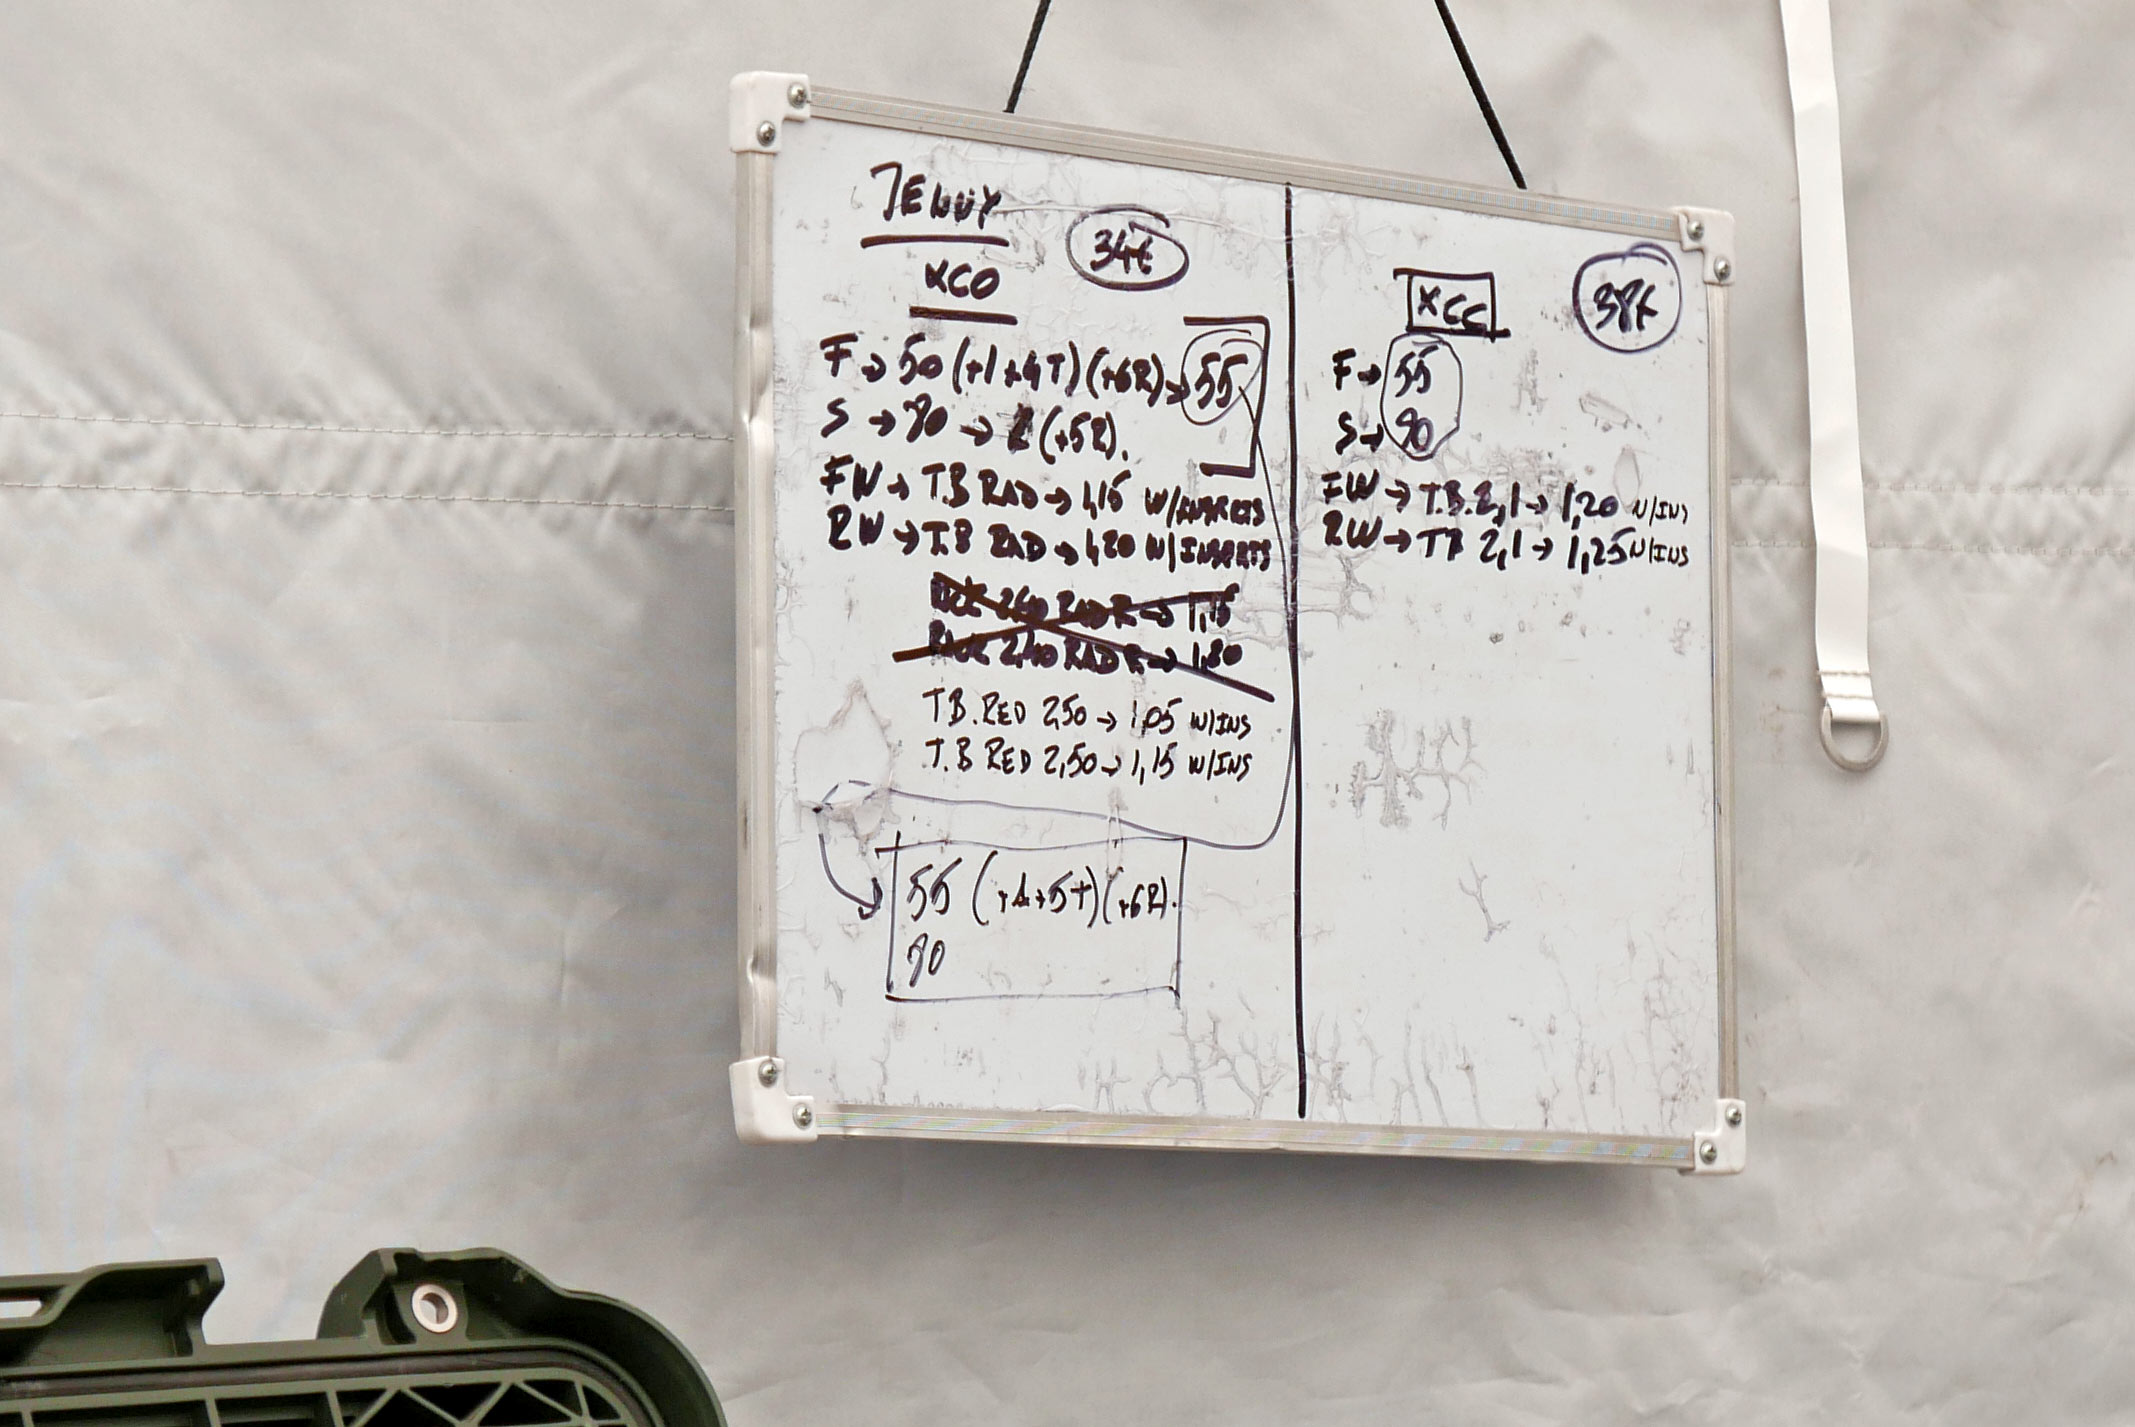 JENNY
34t
XCO
F → 50 (+1+4T)(+6R) → 55
S → 90 → (+5R).
FW → T.B RAD → 1,15 W/INSERTS
RW → T.B RAD → 1,20 W/INSERTS
2,40 RAD R → 1,15
2,40 RAD R → 1,20
T.B. RED 2,50 → 1,05 W/INS
T.B RED 2,50 → 1,15 W/INS
55 (+1+5T)(+6R).
90
XCC
38t
F → 55
S → 90
FW → T.B. 2,1 → 1,20 W/INS
RW → TB 2,1 → 1,25 W/INS